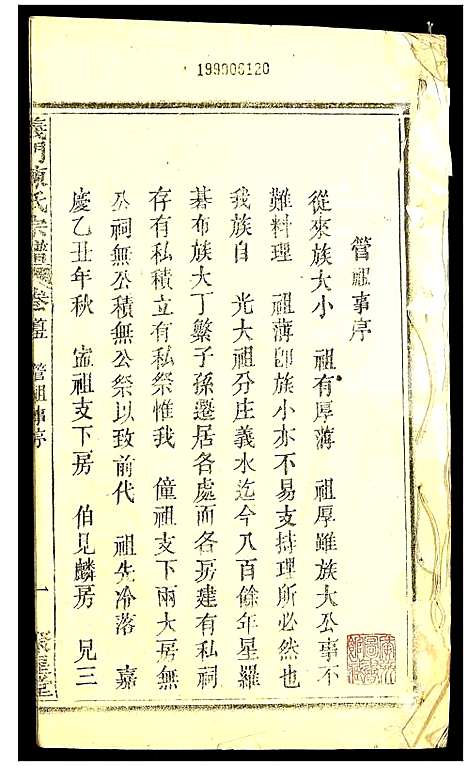 199006120
管祖事序
從來族大小　祖有厚薄　祖厚雖族大公事不
難料理　祖薄卽族小亦不易支持理所必然也
我族自　光大祖分庄義水迄今八百餘年星羅
碁布族大丁繁子孫遷居各處而各房建有私祠
存有私積立有私祭惟我　僮祖支下兩大房無
公祠無公積無公祭以致前代　祖先冷落　嘉
慶乙丑年秋　宓祖支下房　伯見麟房　兄三
義門陳氏宗譜　卷首五　管祖事序　一